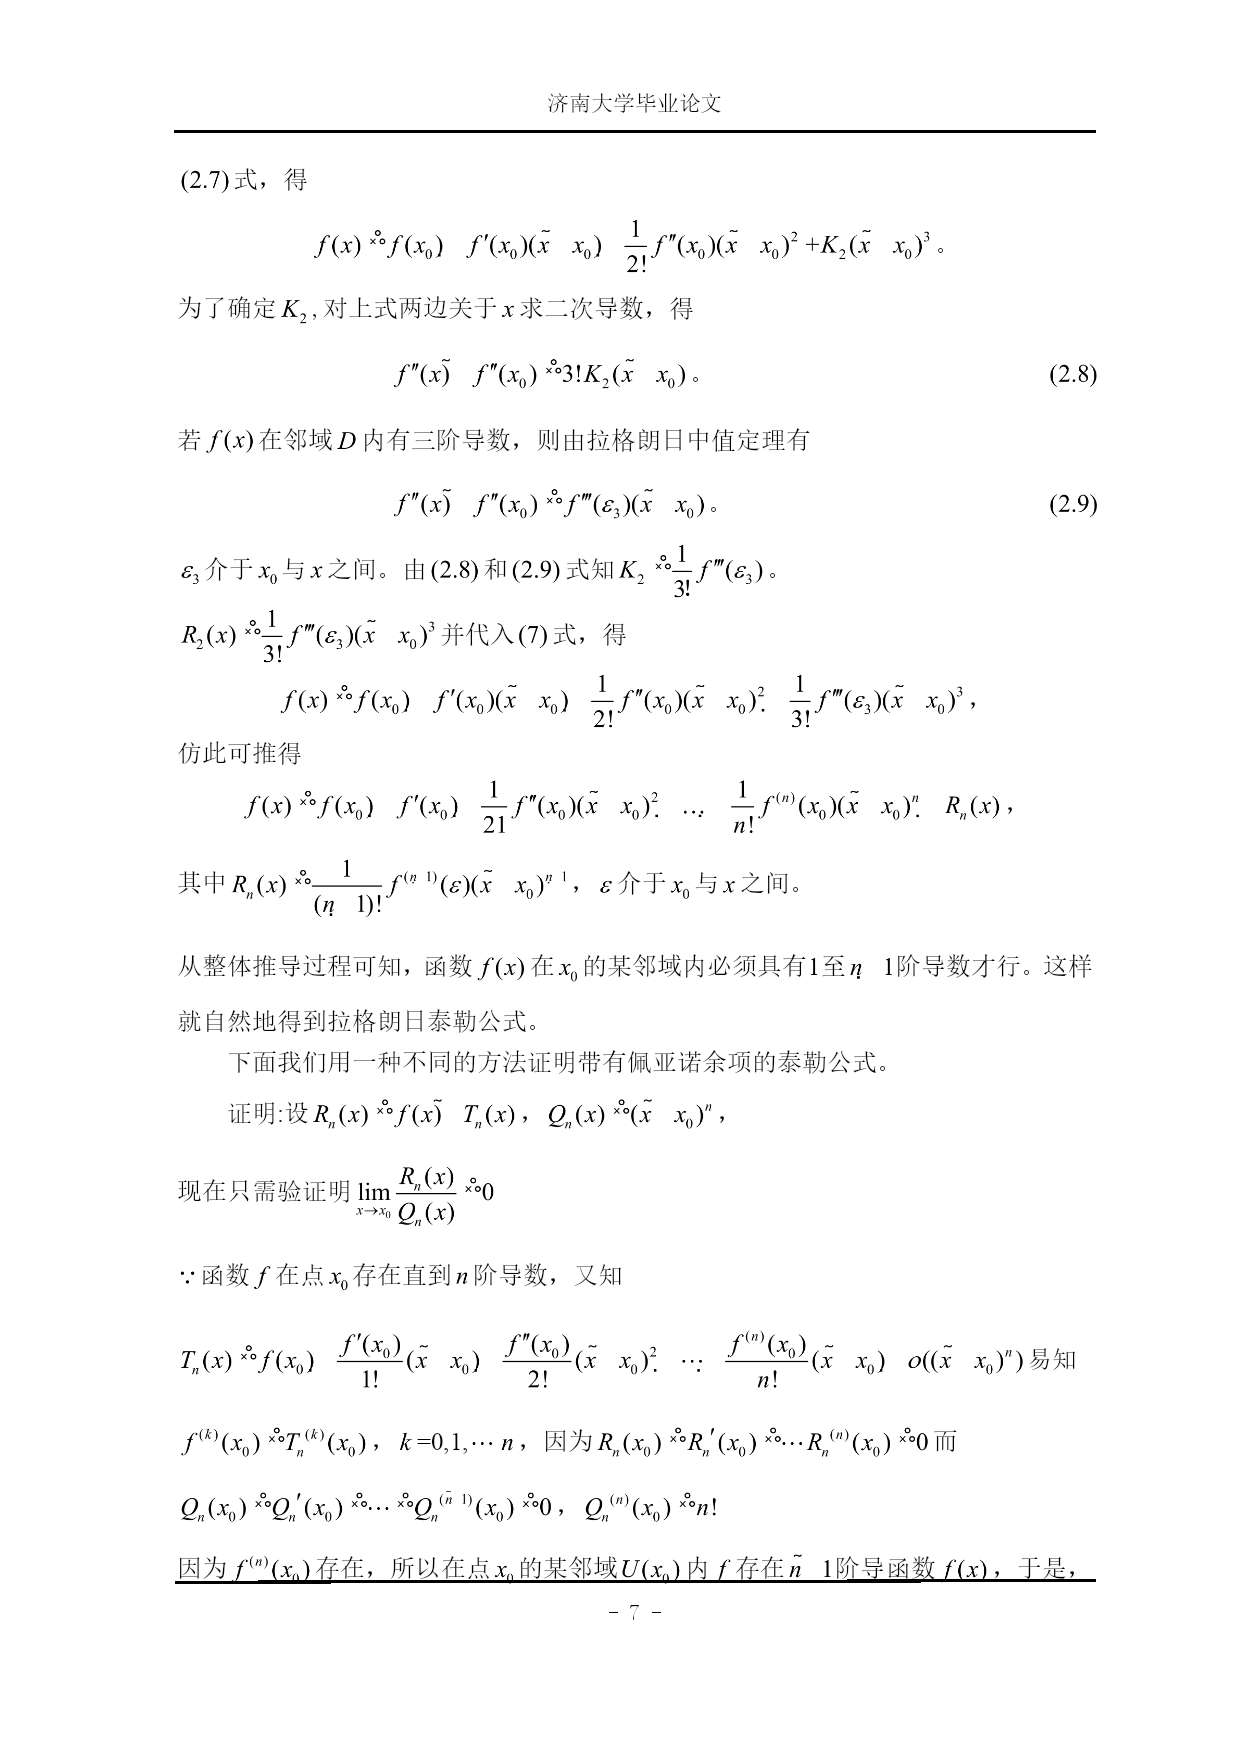 济南大学毕业论文
(2.7)式，得
f(x) = f(x₀) + f′(x₀)(x − x₀) + 1/2! f″(x₀)(x − x₀)² + K₂(x − x₀)³。
为了确定K₂,对上式两边关于x求二次导数，得
f″(x) − f″(x₀) = 3!K₂(x − x₀)。 (2.8)
若f(x)在邻域D内有三阶导数，则由拉格朗日中值定理有
f″(x) − f″(x₀) = f‴(ε₃)(x − x₀)。 (2.9)
ε₃介于x₀与x之间。由(2.8)和(2.9)式知K₂ = 1/3! f‴(ε₃)。
R₂(x) = 1/3! f‴(ε₃)(x − x₀)³并代入(7)式，得
f(x) = f(x₀) + f′(x₀)(x − x₀) + 1/2! f″(x₀)(x − x₀)² + 1/3! f‴(ε₃)(x − x₀)³，
仿此可推得
f(x) = f(x₀) + f′(x₀) + 1/21 f″(x₀)(x − x₀)² + … + 1/n! f⁽ⁿ⁾(x₀)(x − x₀)ⁿ + Rₙ(x)，
其中Rₙ(x) = 1/(n + 1)! f⁽ⁿ⁺¹⁾(ε)(x − x₀)ⁿ⁺¹，ε介于x₀与x之间。
从整体推导过程可知，函数f(x)在x₀的某邻域内必须具有1至n + 1阶导数才行。这样
就自然地得到拉格朗日泰勒公式。
下面我们用一种不同的方法证明带有佩亚诺余项的泰勒公式。
证明:设Rₙ(x) = f(x) − Tₙ(x)，Qₙ(x) = (x − x₀)ⁿ，
现在只需验证明lim x→x₀ Rₙ(x)/Qₙ(x) = 0
∵函数f在点x₀存在直到n阶导数，又知
Tₙ(x) = f(x₀) + f′(x₀)/1! (x − x₀) + f″(x₀)/2! (x − x₀)² + ⋯ + f⁽ⁿ⁾(x₀)/n! (x − x₀) + o((x − x₀)ⁿ)易知
f⁽ᵏ⁾(x₀) = Tₙ⁽ᵏ⁾(x₀)，k=0,1,⋯n，因为Rₙ(x₀) = Rₙ′(x₀) = ⋯Rₙ⁽ⁿ⁾(x₀) = 0而
Qₙ(x₀) = Qₙ′(x₀) = ⋯ = Qₙ⁽ⁿ⁻¹⁾(x₀) = 0，Qₙ⁽ⁿ⁾(x₀) = n!
因为f⁽ⁿ⁾(x₀)存在，所以在点x₀的某邻域U(x₀)内f存在n − 1阶导函数f(x)，于是，
- 7 -